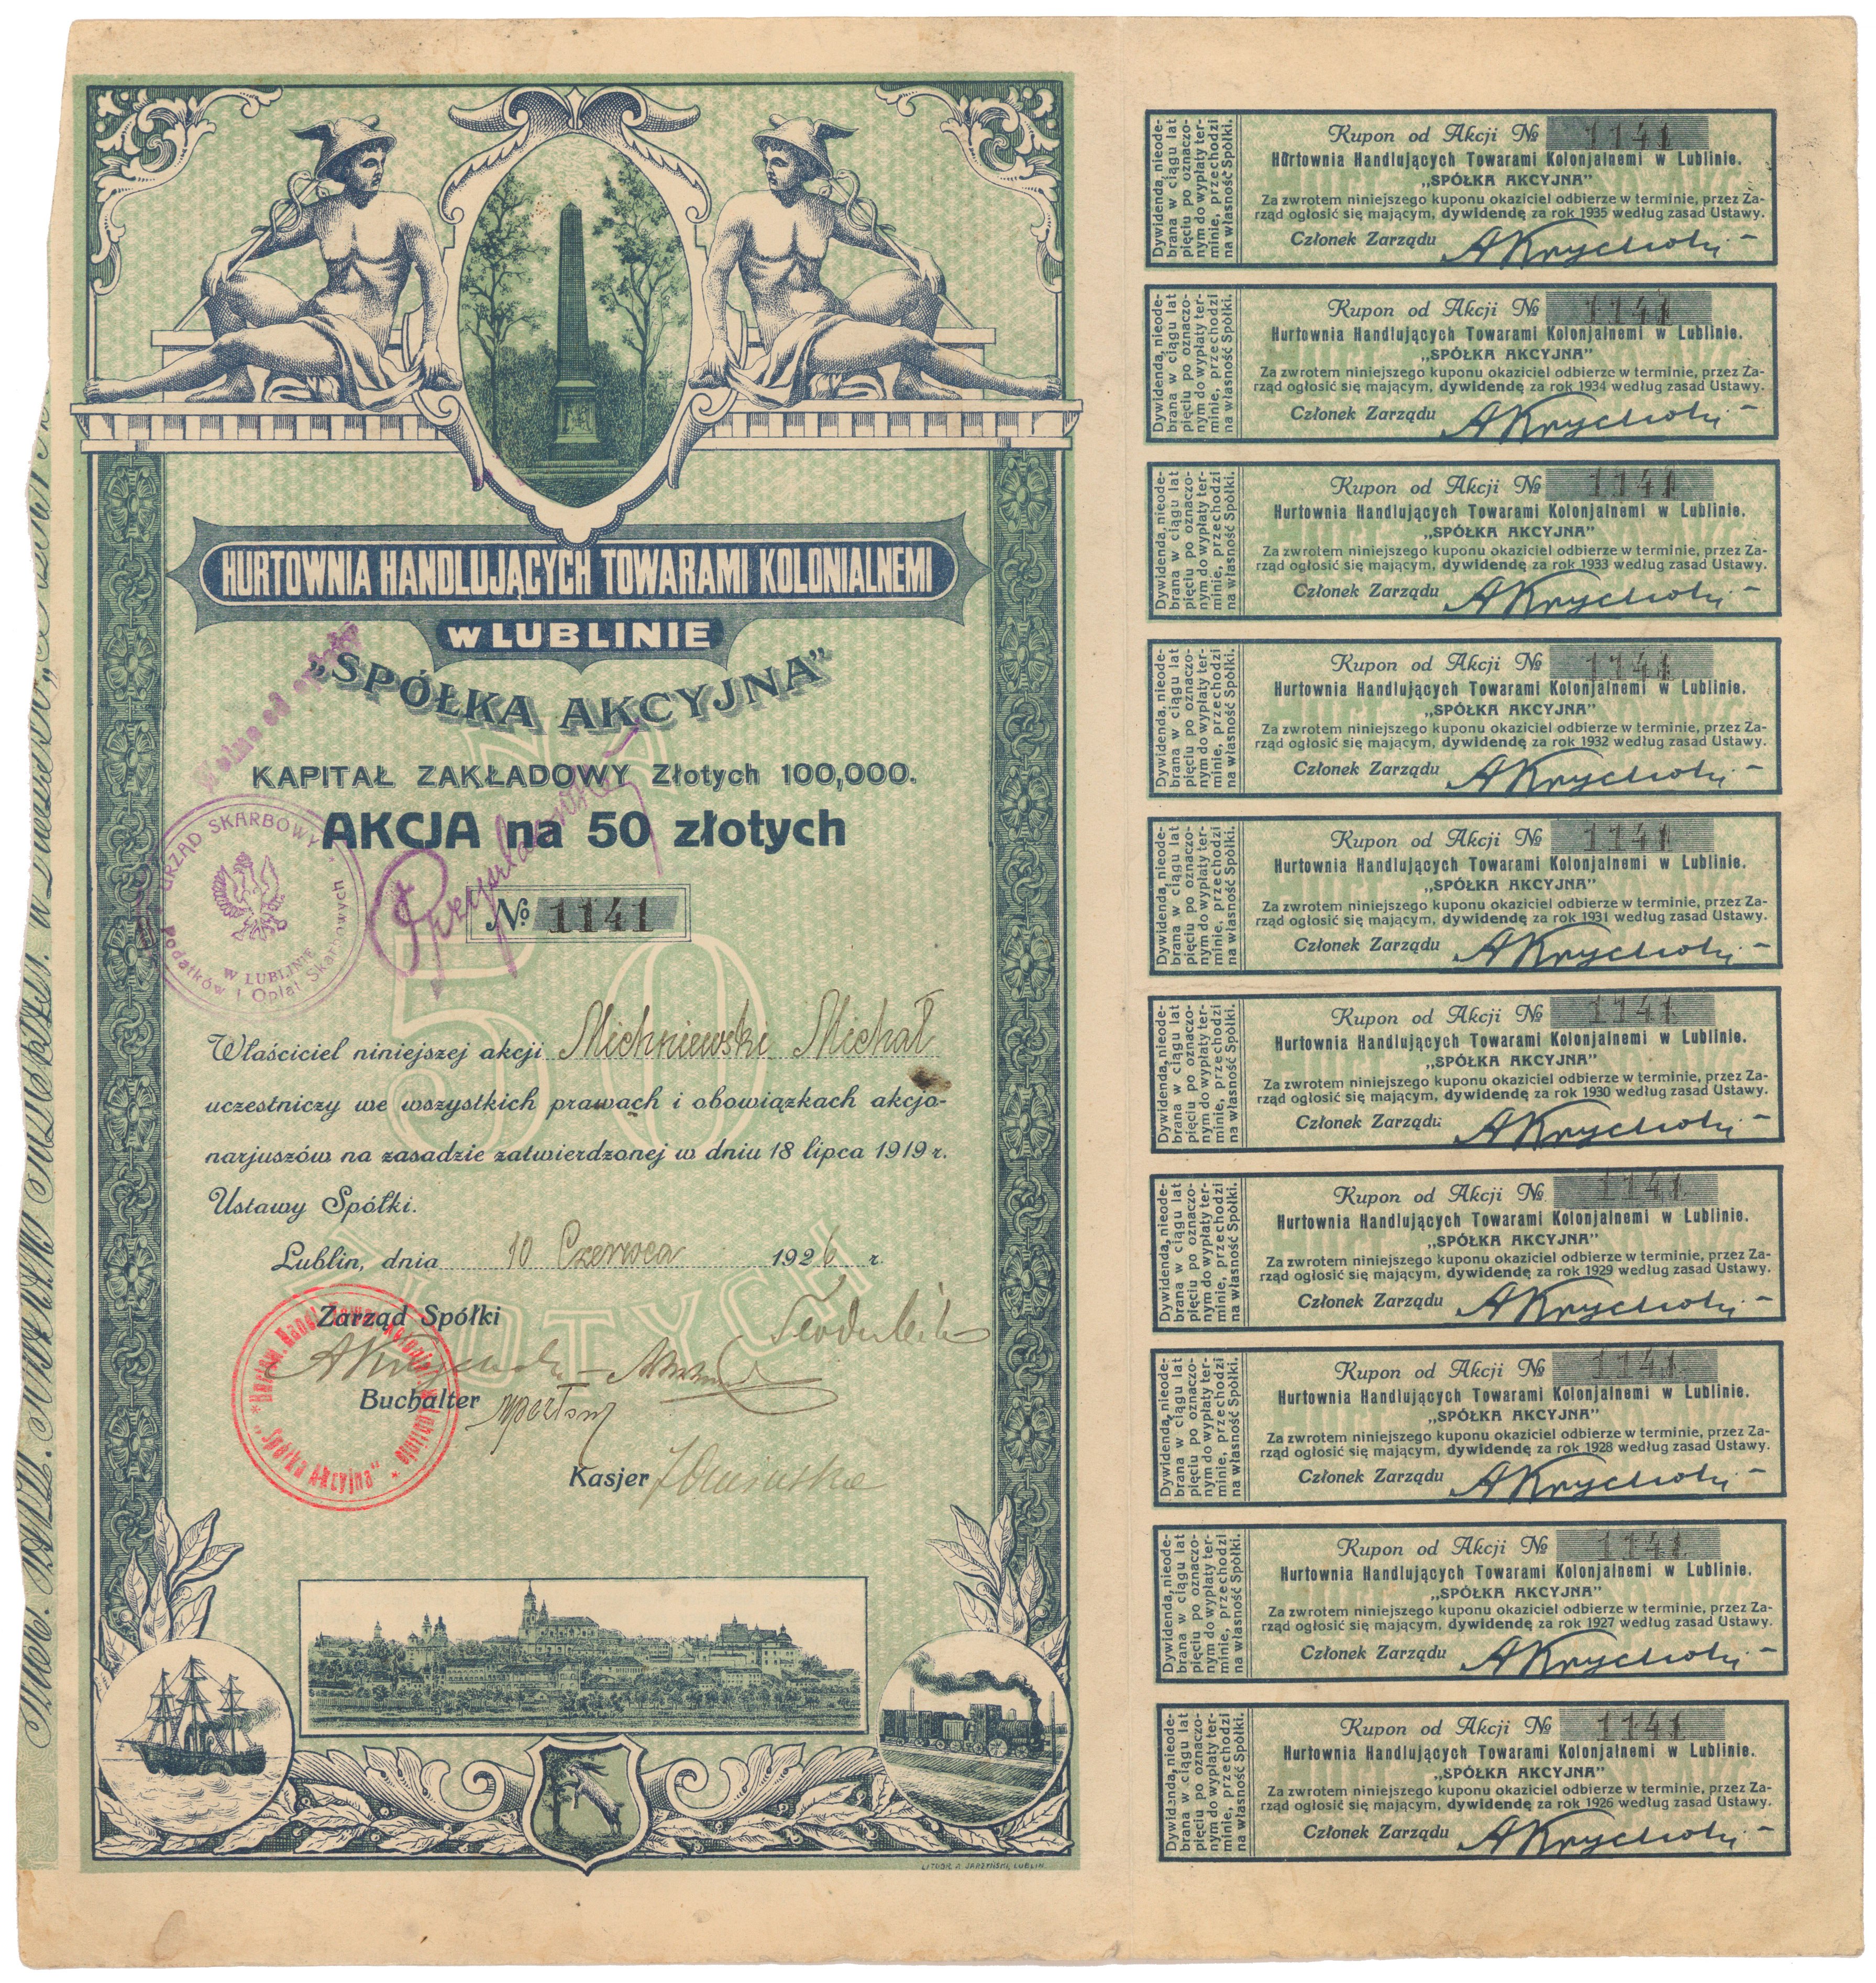 HURTOWNIA HANDLUJĄCYCH TOWARAMI KOLONIALNEMI
W LUBLINIE
„SPÓŁKA AKCYJNA”
Wolne od opłaty
KAPITAŁ ZAKŁADOWY Złotych 100,000.
AKCJA na 50 złotych
URZĄD SKARBOWY
Podatków i Opłat Skarbowych
W LUBLINIE
№ 1141
50
ZŁOTYCH
Właściciel niniejszej akcji Michniewski Michał
uczestniczy we wszystkich prawach i obowiązkach akcjo-
narjuszów na zasadzie zatwierdzonej w dniu 18 lipca 1919 r.
Ustawy Spółki.
Lublin, dnia 10 Czerwca 1926 r.
Zarząd Spółki
Buchalter
Kasjer
"Spółka Akcyjna"
LITOGR. A. JARZYŃSKI, LUBLIN.
Kupon od Akcji № 1141
Hurtownia Handlujących Towarami Kolonjalnemi w Lublinie.
„SPÓŁKA AKCYJNA”
Za zwrotem niniejszego kuponu okaziciel odbierze w terminie, przez Za-
rząd ogłosić się mającym, dywidendę za rok 1935 według zasad Ustawy.
Członek Zarządu
Dywidenda, nieode-
brana w ciągu lat
pięciu po oznaczo-
nym do wypłaty ter-
minie, przechodzi
na własność Spółki.
Kupon od Akcji № 1141
Hurtownia Handlujących Towarami Kolonjalnemi w Lublinie.
„SPÓŁKA AKCYJNA”
Za zwrotem niniejszego kuponu okaziciel odbierze w terminie, przez Za-
rząd ogłosić się mającym, dywidendę za rok 1934 według zasad Ustawy.
Członek Zarządu
Dywidenda, nieode-
brana w ciągu lat
pięciu po oznaczo-
nym do wypłaty ter-
minie, przechodzi
na własność Spółki.
Kupon od Akcji № 1141
Hurtownia Handlujących Towarami Kolonjalnemi w Lublinie.
„SPÓŁKA AKCYJNA”
Za zwrotem niniejszego kuponu okaziciel odbierze w terminie, przez Za-
rząd ogłosić się mającym, dywidendę za rok 1933 według zasad Ustawy.
Członek Zarządu
Dywidenda, nieode-
brana w ciągu lat
pięciu po oznaczo-
nym do wypłaty ter-
minie, przechodzi
na własność Spółki.
Kupon od Akcji № 1141
Hurtownia Handlujących Towarami Kolonjalnemi w Lublinie.
„SPÓŁKA AKCYJNA”
Za zwrotem niniejszego kuponu okaziciel odbierze w terminie, przez Za-
rząd ogłosić się mającym, dywidendę za rok 1932 według zasad Ustawy.
Członek Zarządu
Dywidenda, nieode-
brana w ciągu lat
pięciu po oznaczo-
nym do wypłaty ter-
minie, przechodzi
na własność Spółki.
Kupon od Akcji № 1141
Hurtownia Handlujących Towarami Kolonjalnemi w Lublinie.
„SPÓŁKA AKCYJNA”
Za zwrotem niniejszego kuponu okaziciel odbierze w terminie, przez Za-
rząd ogłosić się mającym, dywidendę za rok 1931 według zasad Ustawy.
Członek Zarządu
Dywidenda, nieode-
brana w ciągu lat
pięciu po oznaczo-
nym do wypłaty ter-
minie, przechodzi
na własność Spółki.
Kupon od Akcji № 1141
Hurtownia Handlujących Towarami Kolonjalnemi w Lublinie.
„SPÓŁKA AKCYJNA”
Za zwrotem niniejszego kuponu okaziciel odbierze w terminie, przez Za-
rząd ogłosić się mającym, dywidendę za rok 1930 według zasad Ustawy.
Członek Zarządu
Dywidenda, nieode-
brana w ciągu lat
pięciu po oznaczo-
nym do wypłaty ter-
minie, przechodzi
na własność Spółki.
Kupon od Akcji № 1141
Hurtownia Handlujących Towarami Kolonjalnemi w Lublinie.
„SPÓŁKA AKCYJNA”
Za zwrotem niniejszego kuponu okaziciel odbierze w terminie, przez Za-
rząd ogłosić się mającym, dywidendę za rok 1929 według zasad Ustawy.
Członek Zarządu
Dywidenda, nieode-
brana w ciągu lat
pięciu po oznaczo-
nym do wypłaty ter-
minie, przechodzi
na własność Spółki.
Kupon od Akcji № 1141
Hurtownia Handlujących Towarami Kolonjalnemi w Lublinie.
„SPÓŁKA AKCYJNA”
Za zwrotem niniejszego kuponu okaziciel odbierze w terminie, przez Za-
rząd ogłosić się mającym, dywidendę za rok 1928 według zasad Ustawy.
Członek Zarządu
Dywidenda, nieode-
brana w ciągu lat
pięciu po oznaczo-
nym do wypłaty ter-
minie, przechodzi
na własność Spółki.
Kupon od Akcji № 1141
Hurtownia Handlujących Towarami Kolonjalnemi w Lublinie.
„SPÓŁKA AKCYJNA”
Za zwrotem niniejszego kuponu okaziciel odbierze w terminie, przez Za-
rząd ogłosić się mającym, dywidendę za rok 1927 według zasad Ustawy.
Członek Zarządu
Dywidenda, nieode-
brana w ciągu lat
pięciu po oznaczo-
nym do wypłaty ter-
minie, przechodzi
na własność Spółki.
Kupon od Akcji № 1141
Hurtownia Handlujących Towarami Kolonjalnemi w Lublinie.
„SPÓŁKA AKCYJNA”
Za zwrotem niniejszego kuponu okaziciel odbierze w terminie, przez Za-
rząd ogłosić się mającym, dywidendę za rok 1926 według zasad Ustawy.
Członek Zarządu
Dywidenda, nieode-
brana w ciągu lat
pięciu po oznaczo-
nym do wypłaty ter-
minie, przechodzi
na własność Spółki.